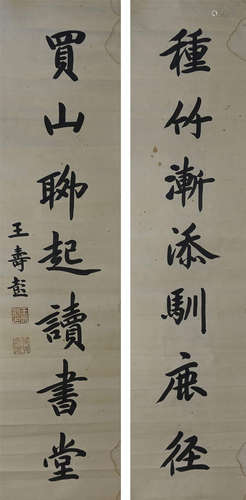 種竹漸添馴鹿径
買山聊起讀書堂
王壽彭